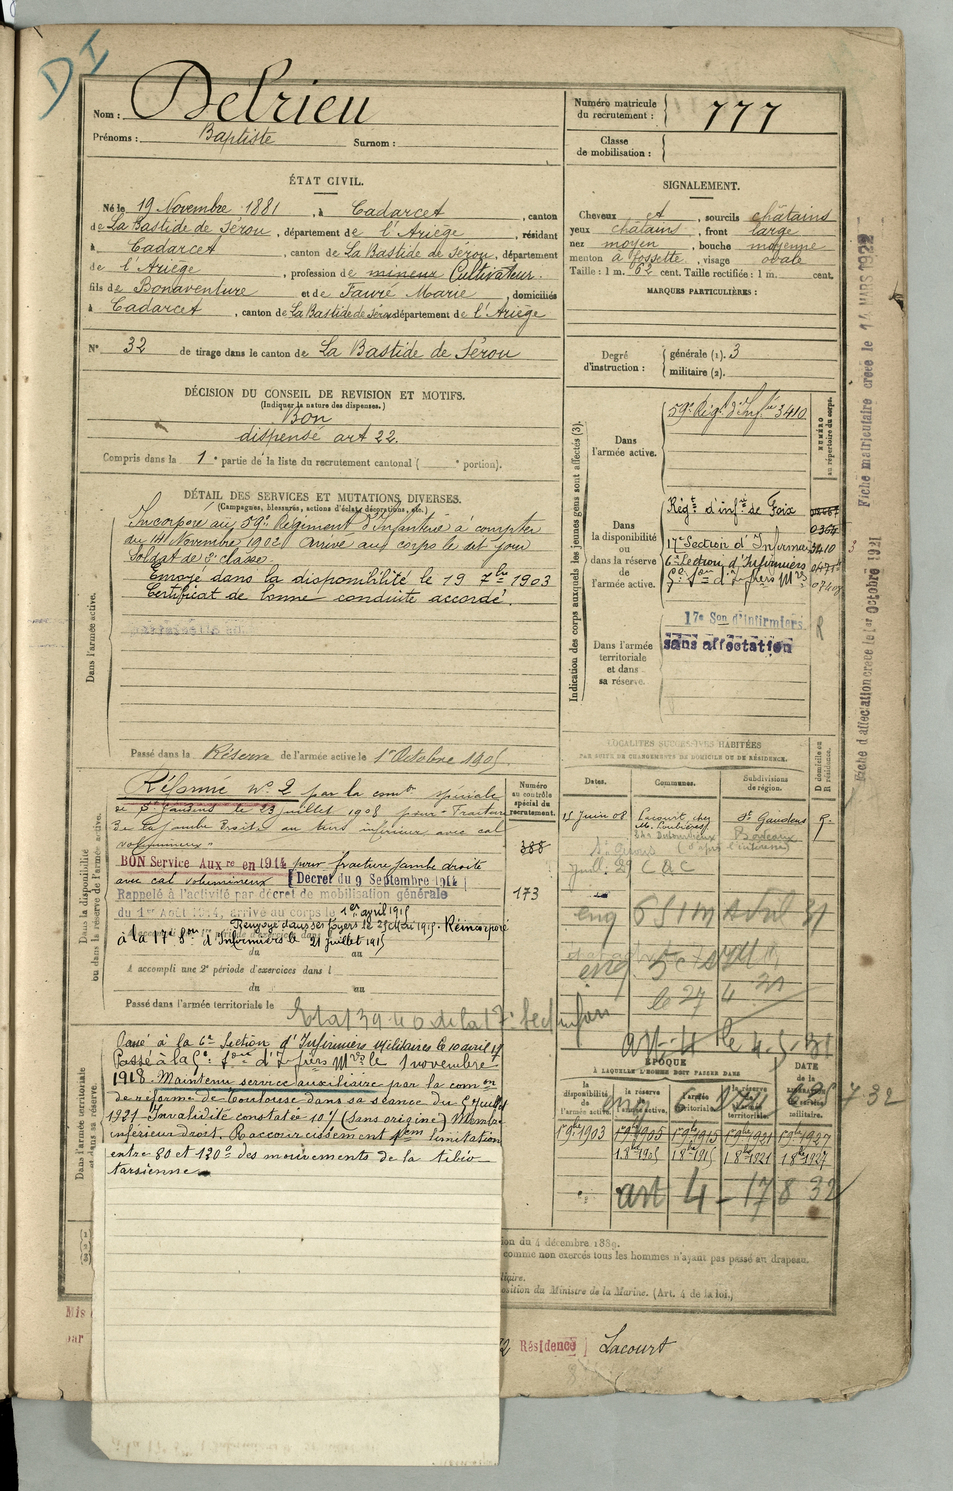 DI
Nom : Delrieu
Prénoms : Baptiste Surnom :
Numéro matricule du recrutement : 777
Classe de mobilisation :
ÉTAT CIVIL.
Né le 19 Novembre 1881, à Cadarcet, canton
de La Bastide de Sérou, département de l'Ariège, résidant
à Cadarcet, canton de La Bastide de Sérou, département
de l'Ariège, profession de mineur Cultivateur.
fils de Bonaventure et de Fauré Marie, domiciliés
à Cadarcet, canton de La Bastide de Serou département de l'Ariège
N° 32 de tirage dans le canton de La Bastide de Sérou
SIGNALEMENT.
Cheveux et, sourcils châtains
yeux châtains, front large
nez moyen, bouche moyenne
menton à fossette, visage ovale
Taille : 1 m. 62 cent. Taille rectifiée : 1 m. cent.
MARQUES PARTICULIÈRES :
Degré d'instruction : générale (1). 3
militaire (2).
DÉCISION DU CONSEIL DE REVISION ET MOTIFS.
(Indiquer la nature des dispenses.)
Bon
dispensé art 22.
Compris dans la 1e partie de la liste du recrutement cantonal ( e portion).
DÉTAIL DES SERVICES ET MUTATIONS DIVERSES.
(Campagnes, blessures, actions d'éclat, décorations, etc.)
Dans l'armée active.
Incorporé au 59e Régiment d'Infanterie à compter
du 14 Novembre 1902 arrivé au corps le dit jour
Soldat de 2e classe.
Envoyé dans la disponibilité le 19 7bre 1903
Certificat de bonne conduite accordé.
Passé dans la Réserve de l'armée active le 1er Octobre 1905.
Indication des corps auxquels les jeunes gens sont affectés (3).
NUMÉRO au répertoire du corps.
Dans l'armée active.
59e Régt d'Infie 3410
Dans la disponibilité ou dans la réserve de l'armée active.
Régt d'infie de Foix
0364
17e Section d'Infirmiers 3410
6e Section d'Infirmiers
Dans l'armée territoriale et dans sa réserve.
17e Son d'infirmiers R
sans affectation
Fiche matriculaire créée le 14 MARS 1922
Fiche d'affectation créée le 1er Octobre 1921
Dans la disponibilité ou dans la réserve de l'armée active.
Numéro au contrôle spécial du recrutement.
Réformé N° 2 par la comon spéciale
de St Gaudens le 23 juillet 1908 pour "Fracture
de la jambe droite au tiers inférieur avec cal
volumineux"
388
BON Service Auxre en 1914 pour fracture jambe droite
avec cal volumineux [Décret du 9 Septembre 1914]
Rappelé à l'activité par décret de mobilisation générale
173
du 1er Août 1914, arrivé au corps le 1er avril 1915
Renvoyé dans ses foyers le 25 Mai 1915. Réincorporé
à la 17e Son d'Infirmiers le 21 juillet 1915
du au
A accompli une 2e période d'exercices dans l
du au
Passé dans l'armée territoriale le
LOCALITÉS SUCCESSIVES HABITÉES
PAR SUITE DE CHANGEMENTS DE DOMICILE OU DE RÉSIDENCE.
Dates. Communes. Subdivisions de région. D domicile ou R résidence.
15 Juin 08 Lacourt, chez St Gaudens R.
St Girons
Dans l'armée territoriale et dans sa réserve.
Passé à la 6e Section d'Infirmiers Militaires le 10 avril 17
Passé à la 9e Son d'Infirs Mres le 1 novembre
1918. Maintenu service auxiliaire par la comon
de réforme de Toulouse dans sa séance du 6 juillet
1921 Invalidité constatée 10% (sans origine) Membre
inférieur droit. Raccourcissement limitation
entre 80 et 130° des mouvements de la tibio-
tarsienne
ÉPOQUE
À LAQUELLE L'HOMME DOIT PASSER DANS
la disponibilité de l'armée active. la réserve de l'armée active. l'armée territoriale. la réserve de l'armée territoriale. DATE de la LIBÉRATION du service militaire.
1 8bre 1905 1 8bre 1915 1 8bre 1921 1 8bre 1927
art 4 - 17 8 32
ion du 4 décembre 1889.
comme non exercés tous les hommes n'ayant pas passé au drapeau.
osition du Ministre de la Marine. (Art. 4 de la loi.)
Mis
par
Résidence Lacourt